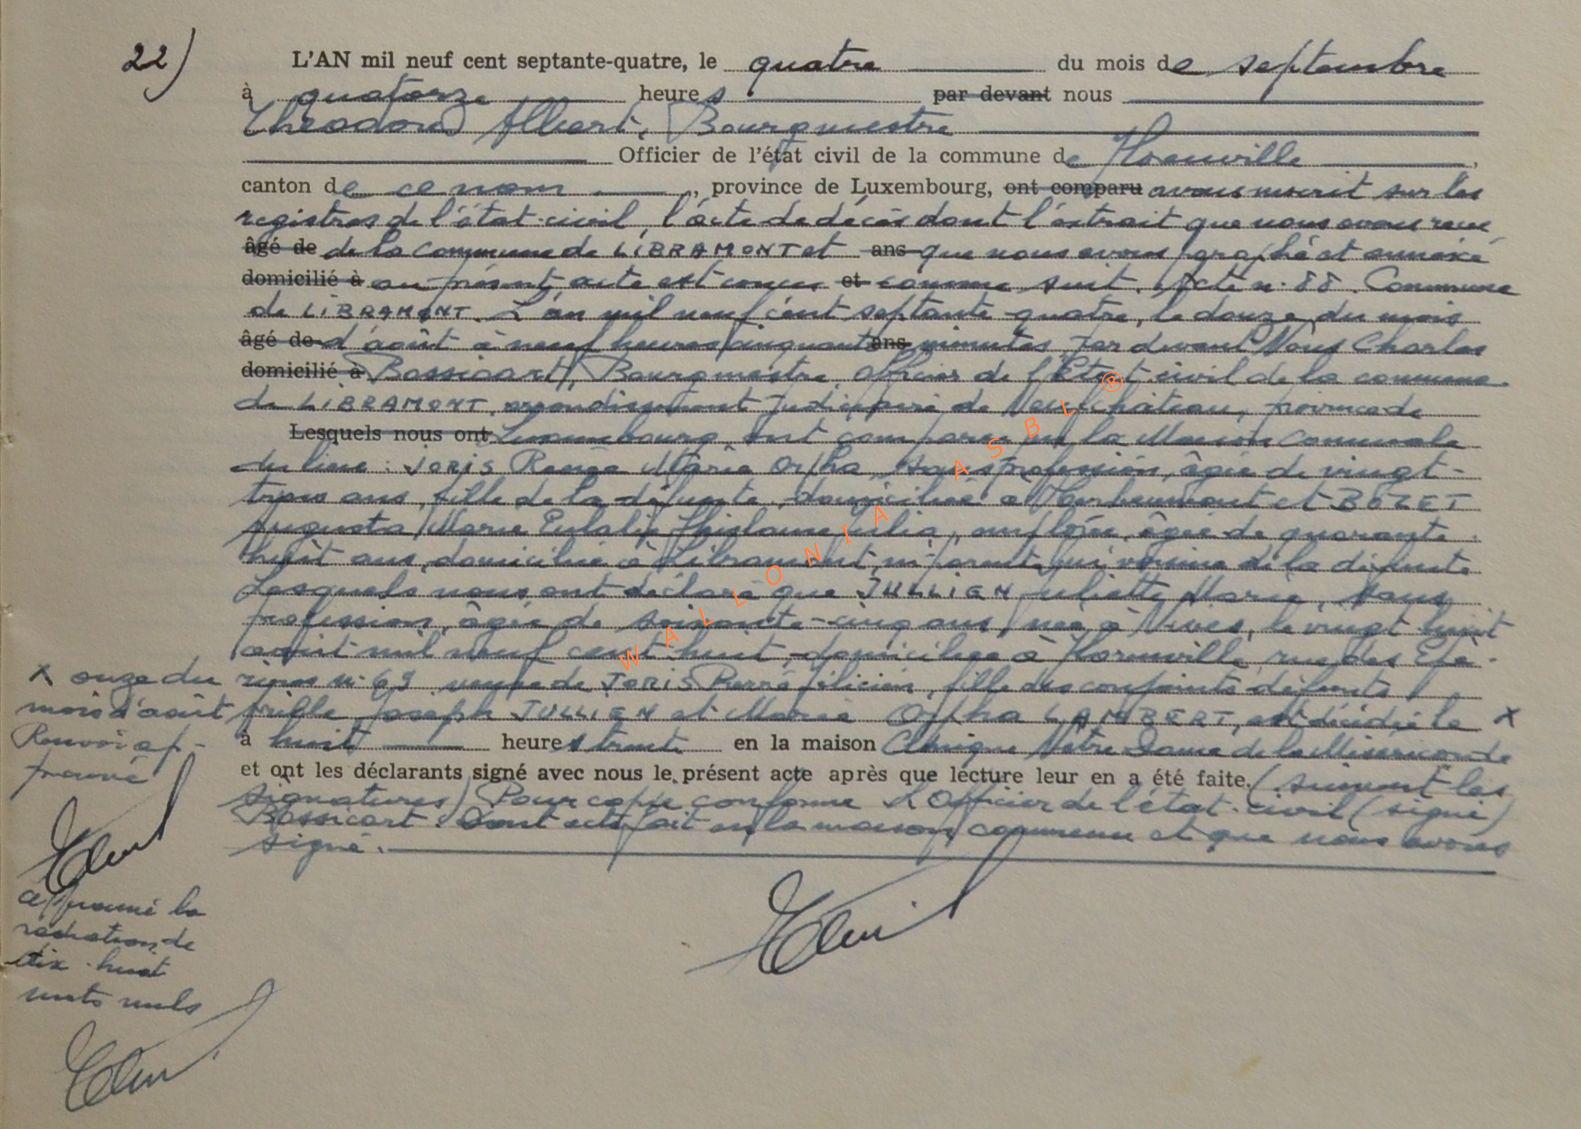 22)
L'AN mil neuf cent septante-quatre, le quatre du mois de septembre
à quatorze heures par devant nous
Théodore Albert, Bourgmestre
Officier de l'état civil de la commune de
canton de ce nom, province de Luxembourg, ont comparu avons inscrit sur les
registres de l'état-civil, l'acte de décès dont l'extrait que nous avons reçu
âgé de de la commune de LIBRAMONT et ans que nous avons paraphé et annexé
domicilié à au présent acte est conçu et comme suit. Acte n. 88. Commune
de LIBRAMONT. L'an mil neuf cent septante-quatre, le douze du mois
âgé de d'août à neuf heures cinquante ans minutes, par devant Nous Charles
domicilié à Bossicart, Bourgmestre, Officier de l'Etat-civil de la commune
de LIBRAMONT, arrondissement judiciaire de Neufchâteau, province de
Lesquels nous ont Luxembourg, ont comparu en la Maison Communale
du lieu : JORIS Renée Marie Orpha, sans profession, âgée de vingt-
trois ans, fille de la défunte, domiciliée à et BOZET
Augusta Marie Eulalie Ghislaine Julia, employée, âgée de quarante
huit ans, domiciliée à Libramont, ni parente, ni voisine de la défunte
Lesquels nous ont déclaré que JULLIEN Juliette Marie, sans
profession, âgée de soixante-cinq ans, née à Vives, le vingt huit
août mil neuf cent huit, domiciliée à rue des
n. 69 veuve de JORIS Pierre Félicien, fille des conjoints défunts
Joseph JULLIEN et Marie Orpha LAMBERT, est décédée le x
à huit heures trente en la maison Clinique Notre Dame de la Miséricorde
et ont les déclarants signé avec nous le présent acte après que lecture leur en a été faite. (suivent les
signatures) Pour copie conforme L'Officier de l'état-civil (signé)
Bossicart. Dont acte fait en la maison commune et que nous avons
signé.
x onze du
mois d'août
Renvoi ap-
prouvé
approuvé la
radiation de
dix-huit
mots nuls
WALLONIA ASBL ®